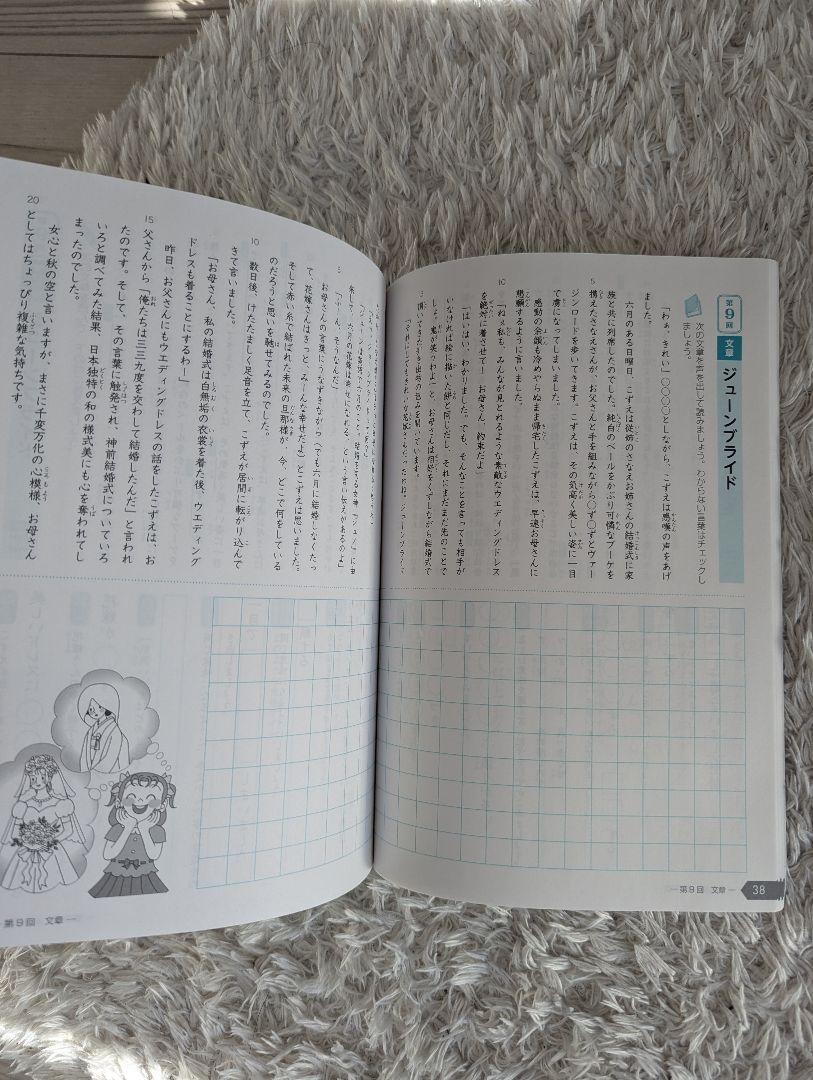 第9回
文章
ジューンブライド
次の文章を声を出して読みましょう。わからない言葉はチェックし
ましょう。
「わぁ、きれい」〇〇〇〇としながら、こずえは感嘆の声をあげ
ました。
六月のある日曜日、こずえは従姉のさなえお姉さんの結婚式に家
族と共に列席したのでした。純白のベールをかぶり可憐なブーケを
携えたさなえさんが、お父さんと手を組みながら〇ず〇ずとヴァー
ジンロードを歩いてきます。こずえは、その気高く美しい姿に一目
で虜になってしまいました。
感動の余韻も冷めやらぬまま帰宅したこずえは、早速お母さんに
懇願するように言いました。
「ねぇ私も、みんなが見とれるような素敵なウエディングドレス
を絶対に着させて！ お母さん、約束だよ」
「はいはい、わかりました。でも、そんなことを言っても相手が
いなければ絵に描いた餅と同じだし、それにまだまだ先のことで
しょ。鬼が笑うわよ」と、お母さんは相好をくずしながら結婚式で
頂いてきた引き出物の包みを開いています。
「ふーん、そうなんだ」
お母さんの言葉にうなずきながら（でも六月に結婚しなくたっ
て、花嫁さんはきっと、みんな幸せだよ）とこずえは思いました。
そして赤い糸で結ばれた未来の旦那様が、今、どこで何をしている
のだろうと思いを馳せてみるのでした。
数日後、けたたましく足音を立て、こずえが居間に転がり込んで
きて言いました。
「お母さん、私の結婚式は白無垢の衣裳を着た後、ウエディング
ドレスも着ることにするわ！」
昨日、お父さんにもウエディングドレスの話をしたこずえは、お
父さんから「俺たちは三三九度を交わして結婚したんだ」と言われ
たのです。そして、その言葉に触発され、神前結婚式についていろ
いろと調べてみた結果、日本独特の和の様式美にも心を奪われてし
まったのでした。
女心と秋の空と言いますが、まさに千変万化の心模様、お母さん
としてはちょっぴり複雑な気持ちです。
5
10
5
10
15
20
― 第9回 文章 ―
38
第9回 文章 ―